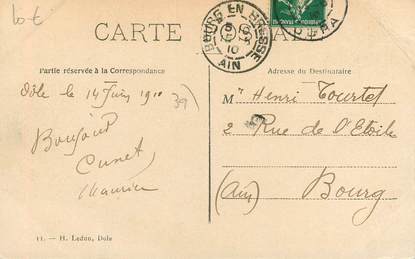 CARTE
BOURG EN BRESSE
10
AIN
Partie réservée à la Correspondance
Adresse du Destinataire
Dôle le 14 Juin 1910
39
Mr Henri Tourtet
2 Rue de l'Etoile
(Ain) Bourg
Bonjour
Cunet
Maurice
11. — H. Ledun, Dole